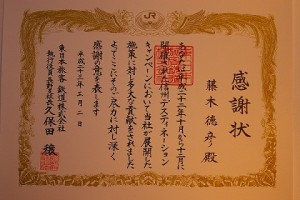 JR
感謝状
藤木徳彦殿
あなたは平成二十二年十月から十二月に
開催された信州デスティネーション
キャンペーンにおいて当社が展開した
施策に対し多大な貢献をされました
よってここにそのご尽力に対し深く
感謝の意を表します
平成二十三年二月二日
東日本旅客鉄道株式会社
執行役員長野支社長久保田穣